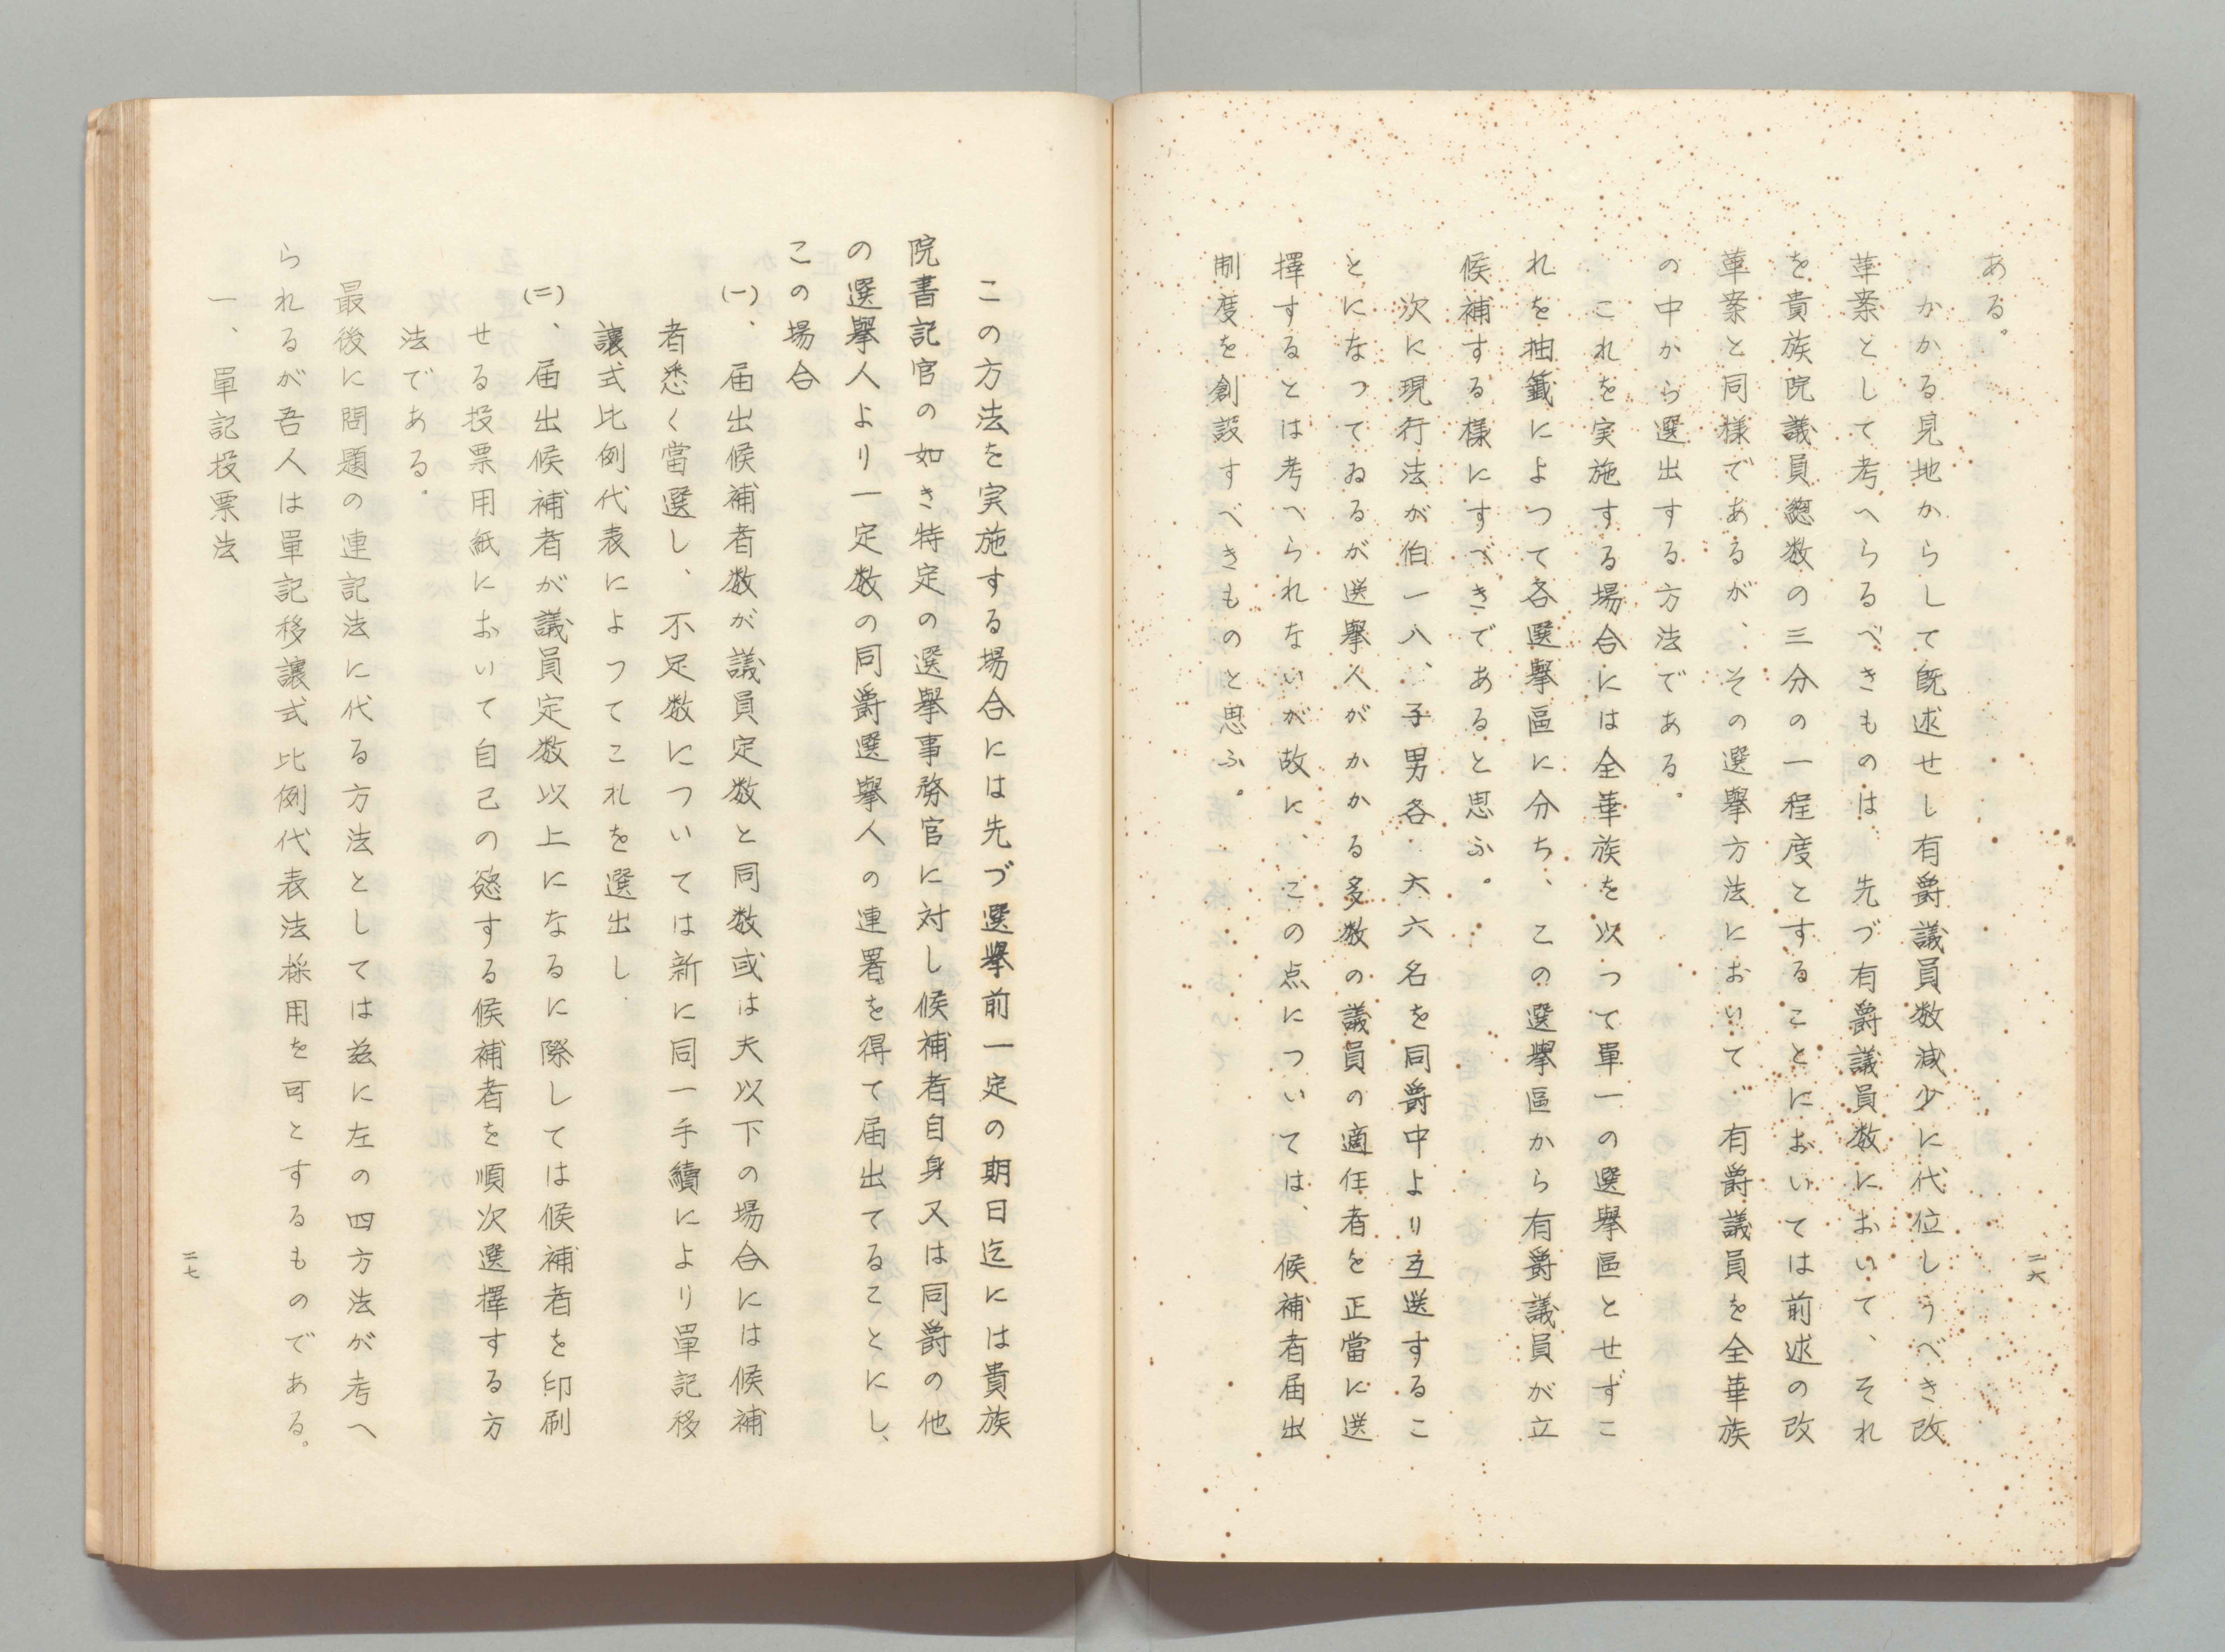 ある。
かかる見地からして既述せし有爵議員数減少に代位しうべき改
革案として考へらるべきものは先づ有爵議員数において、それ
を貴族院議員總数の三分の一程度とすることにおいては前述の改
革案と同様であるが、その選擧方法において、有爵議員を全華族
の中から選出する方法である。
これを実施する場合には全華族を以つて單一の選擧區とせずこ
れを抽籤によつて各選擧區に分ち、この選擧區から有爵議員が立
候補する様にすべきであると思ふ。
次に現行法が伯一八、子男各六六名を同爵中より互選するこ
とになつてゐるが選擧人がかかる多数の議員の適任者を正當に選
擇するとは考へられないが故に、この点については、候補者届出
制度を創設すべきものと思ふ。
二六
この方法を実施する場合には先づ選擧前一定の期日迄には貴族
院書記官の如き特定の選擧事務官に対し候補者自身又は同爵の他
の選擧人より一定数の同爵選擧人の連署を得て届出てることにし、
この場合
(一)、届出候補者数が議員定数と同数或は夫以下の場合には候補
者悉く當選し、不足数については新に同一手續により單記移
讓式比例代表によつてこれを選出し
(二)、届出候補者が議員定数以上になるに際しては候補者を印刷
せる投票用紙において自己の慾する候補者を順次選擇する方
法である。
最後に問題の連記法に代る方法としては茲に左の四方法が考へ
られるが吾人は單記移讓式比例代表法採用を可とするものである。
一、單記投票法
二七